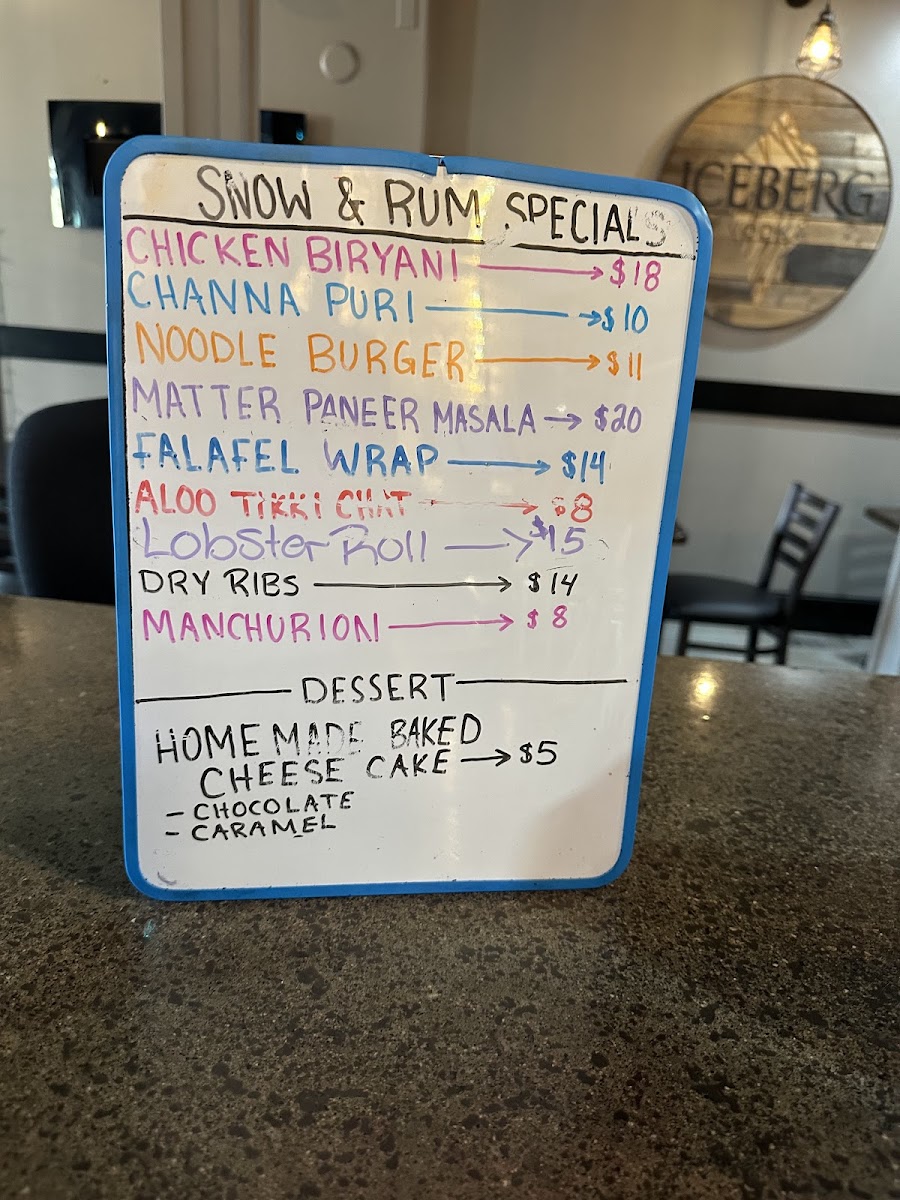 SNOW & RUM SPECIALS
CHICKEN BIRYANI → $18
CHANNA PURI → $10
NOODLE BURGER → $11
MATTER PANEER MASALA → $20
FALAFEL WRAP → $14
ALOO TIKKI CHAT → $8
Lobster Roll → $15
DRY RIBS → $14
MANCHURION → $8
DESSERT
HOME MADE BAKED
CHEESE CAKE → $5
- CHOCOLATE
- CARAMEL
ICEBERG